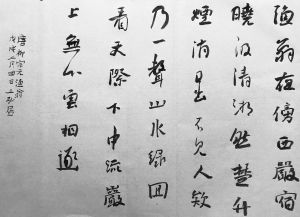 漁翁夜傍西巖宿
曉汲清湘然楚竹
煙消日出不見人欸
乃一聲山水綠回
看天際下中流巖
上無心雲相逐
唐柳宗元漁翁